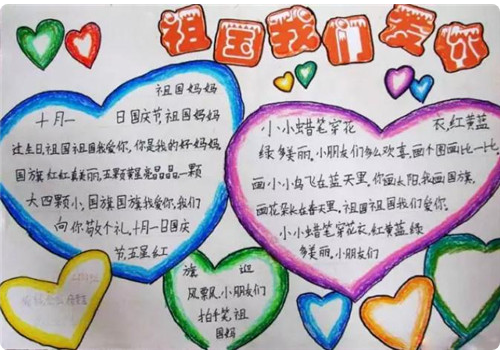 祖国我们爱你
祖国妈妈
十月一日国庆节,祖国妈妈
过生日,祖国祖国我爱你,你是我的好妈妈
国旗红红真美丽,五颗黄星亮晶晶,一颗
大四颗小,国旗国旗我爱你,我们
向你敬个礼,十月一日国庆
节,五星红
旗迎
风飘,小朋友们
拍手笑祖
国妈
小小蜡笔穿花衣,红黄蓝
绿多美丽,小朋友们多么欢喜,画个图画比一比,
画小小鸟飞在蓝天里,你画太阳,我画国旗,
画花朵长在春天里,祖国祖国我们爱你,
小小蜡笔穿花衣,红黄蓝绿
多美丽,小朋友们